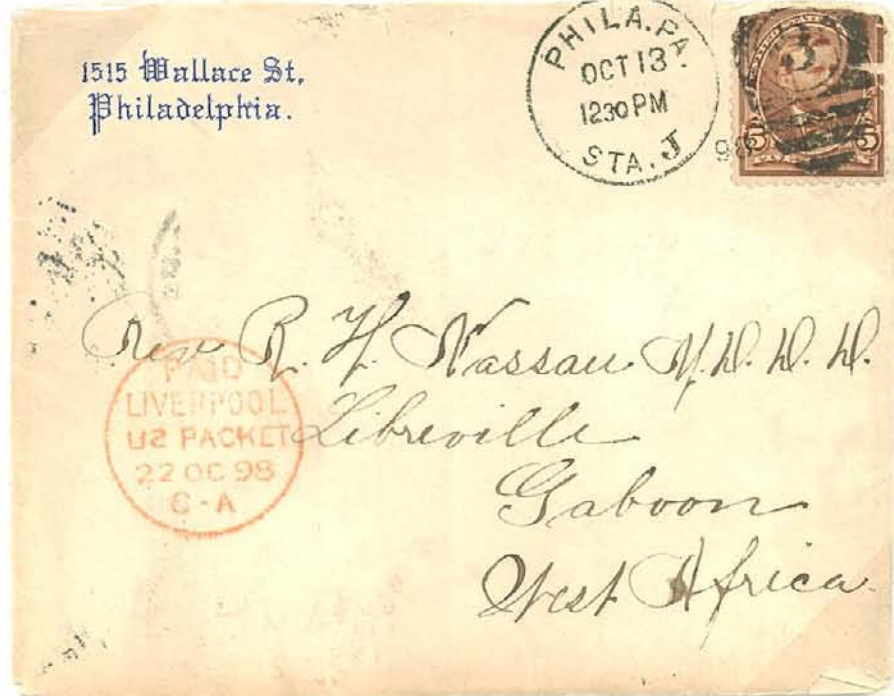 1515 Wallace St,
Philadelphia.
PHILA. PA.
OCT 13
1230 PM
STA. J
98
3
5 5
Rev R. H. Nassau M.D. D. D.
Libreville
Gaboon
West Africa
PAID
LIVERPOOL
US PACKET
22 OC 98
6 - A